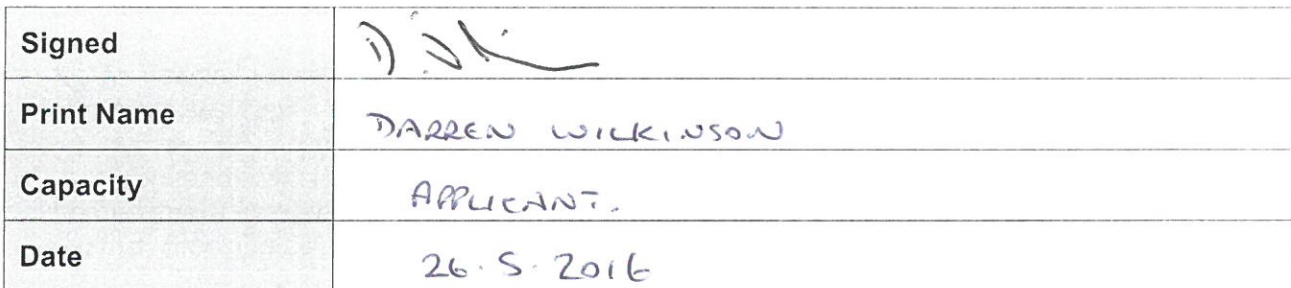 Signed
Print Name DARREN WILKINSON
Capacity APPLICANT.
Date 26.5.2016